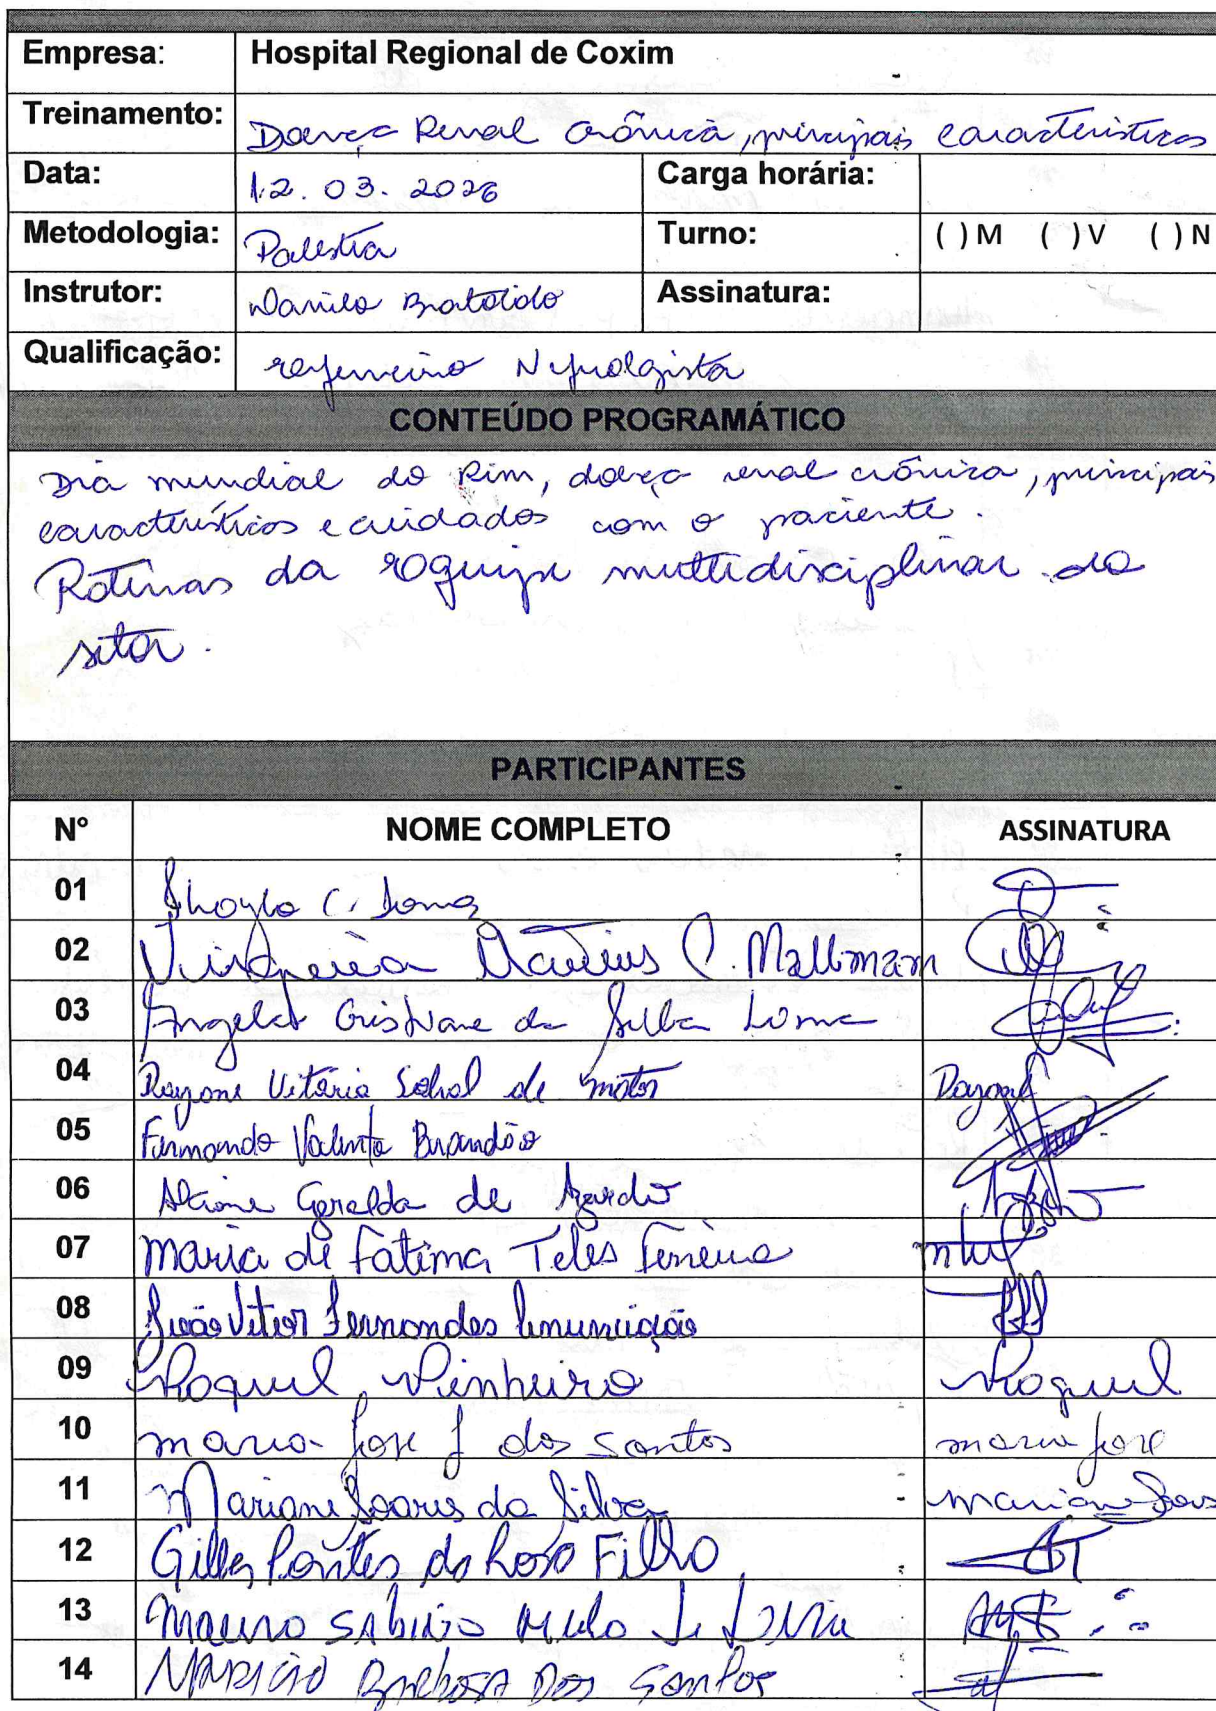 Empresa: Hospital Regional de Coxim
Treinamento: Doença Renal Crônica, principais características
Data: 12.03.2026 Carga horária:
Metodologia: Palestra Turno: ( ) M ( ) V ( ) N
Instrutor: Danilo Assinatura:
Qualificação: Nefrologista
CONTEÚDO PROGRAMÁTICO
Dia mundial do Rim, doença renal crônica, principais
características e cuidados com o paciente.
Rotinas da equipe multidisciplinar do
setor.
PARTICIPANTES
N° NOME COMPLETO ASSINATURA
01 C.
02 C. Mallmam
03 Angela Cristiane da Silva Lima
04 Vitória de matos
05 Fernando Valente Brandão
06 Geralda de
07 Maria de Fatima Teles Ferreira
08 João Vitor Fernandes Anunciação
09 Raquel Pinheiro Raquel
10 maria jose f dos santos maria jose
11 Mariane Soares da Silva mariane
12 Pontes da Rosa Filho
13 Mauro
14 Barbosa Dos Santos